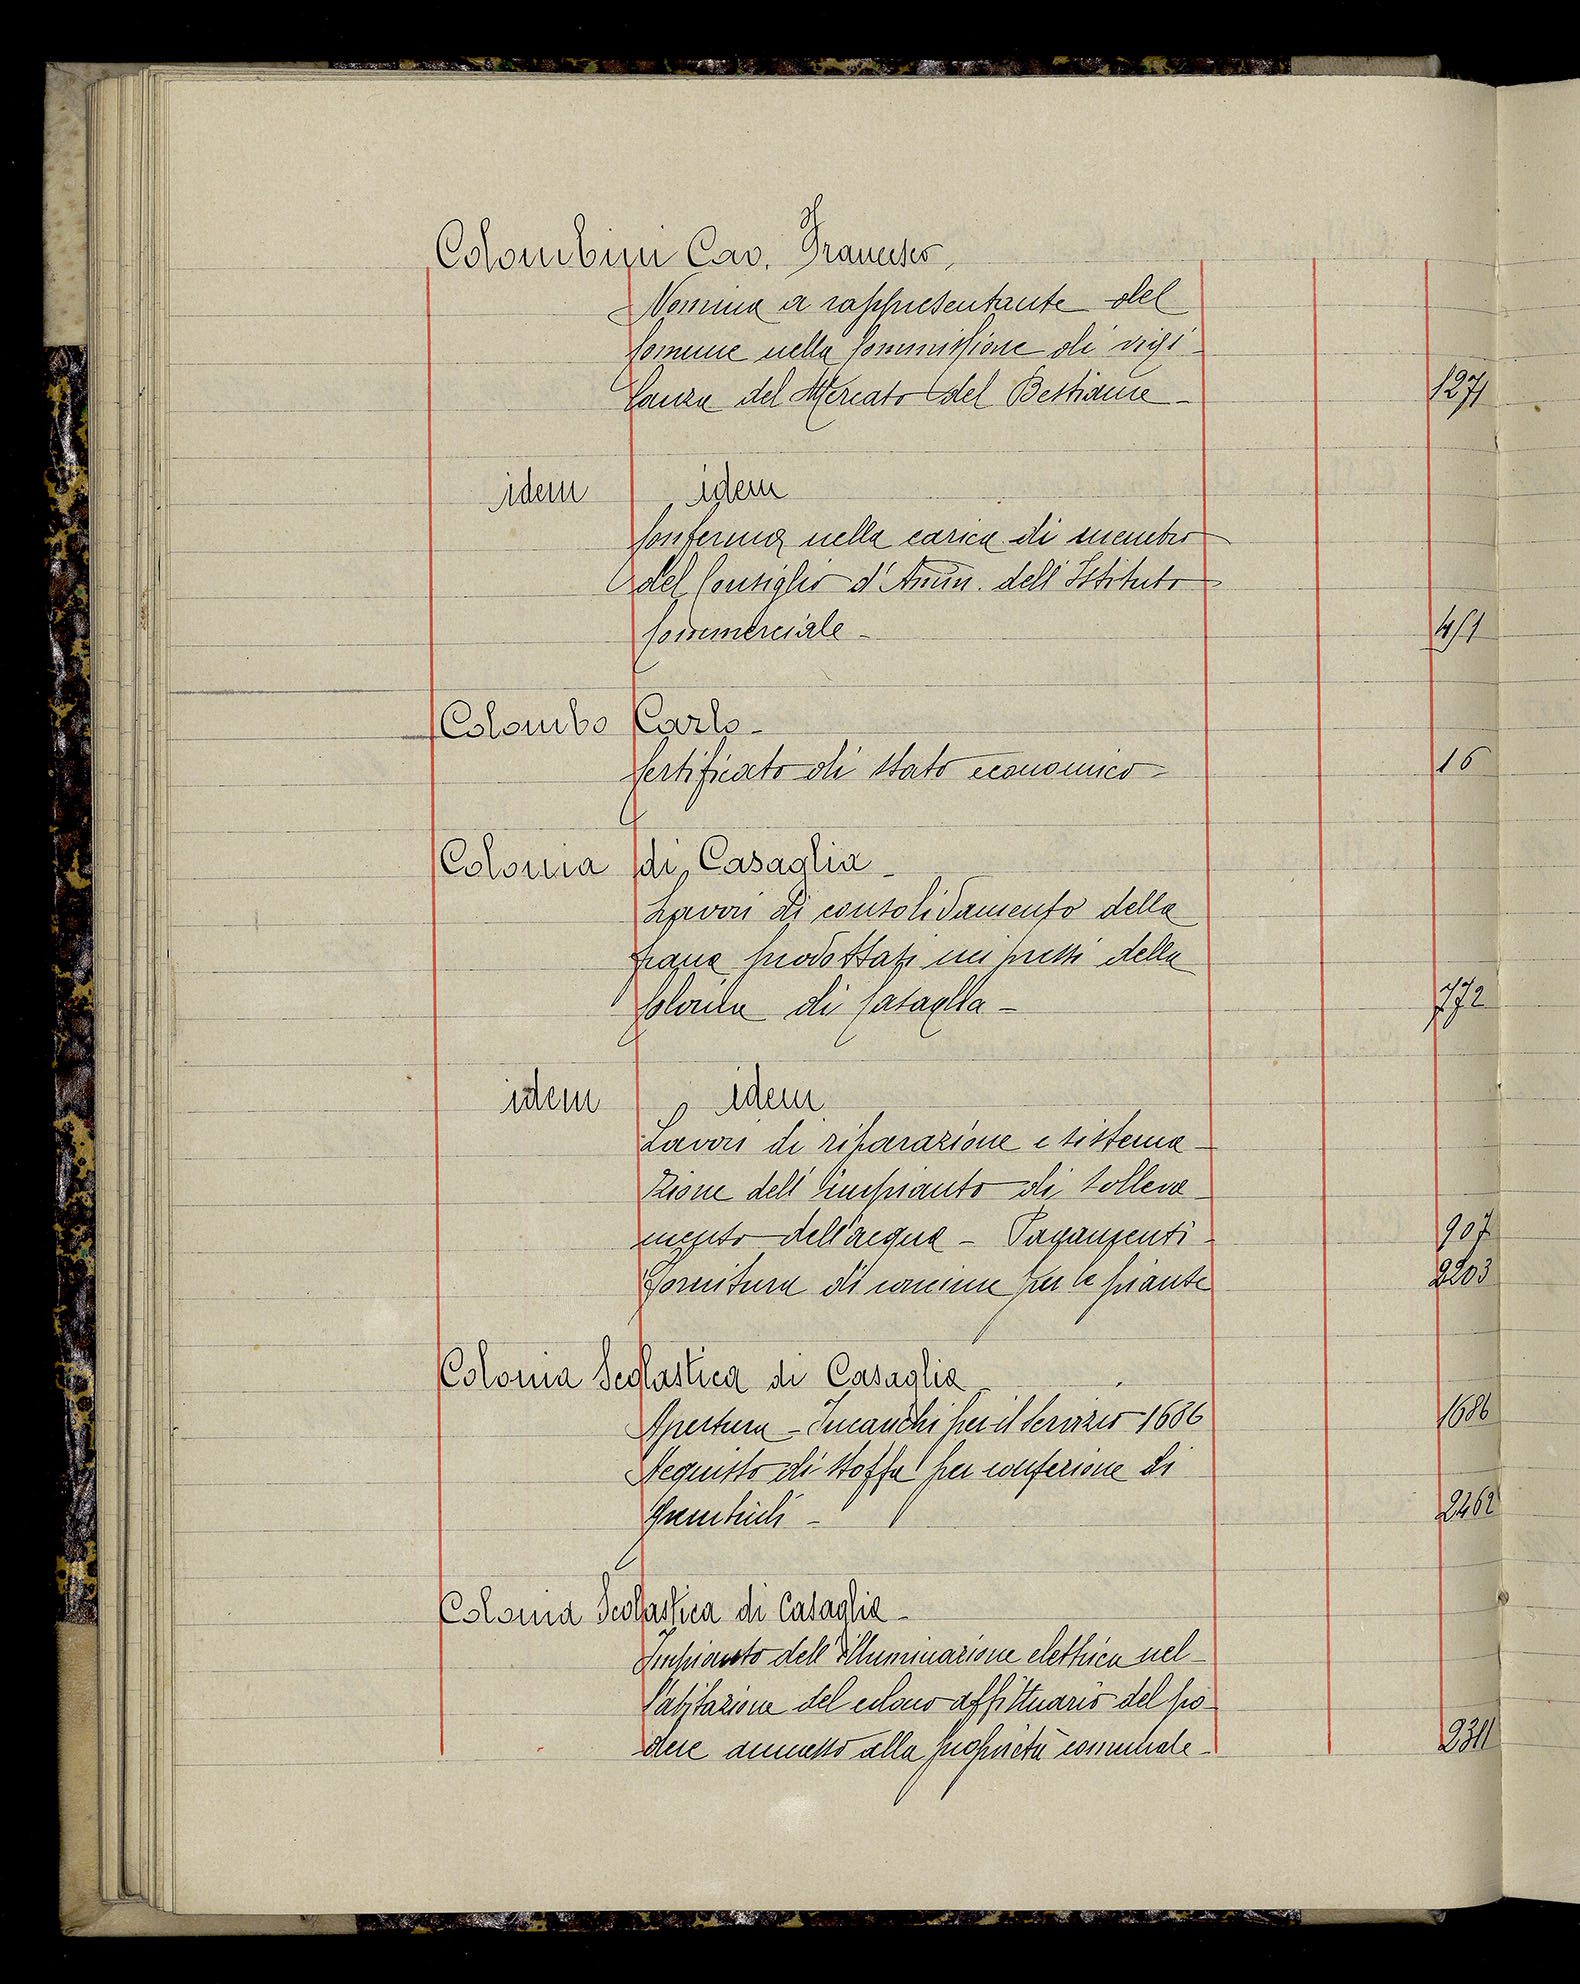 Colombini Cav. Francesco,
Nomina a rappresentante del
Comune nella Commissione di vigi-
lanza del Mercato del Bestiame - 1271
idem idem
Conferma nella carica di membro
del Consiglio d'Amm. dell'Istituto
Commerciale - 451
Colombo Carlo -
Certificato di stato economico - 16
Colonia di Casaglia -
Lavori di consolidamento della
frana prodottasi nei pressi della
Colonia di Casaglia - 772
idem idem
Lavori di riparazione e sistema-
zione dell'impianto di solleva-
mento dell'acqua - Pagamenti - 907
Fornitura di concime per le piante 2203
Colonia Scolastica di Casaglia -
Apertura - Incarichi per il servizio - 1686 1686
Acquisto di stoffa per confezione di
Grembiuli - 2462
Colonia Scolastica di Casaglia -
Impianto dell'illuminazione elettrica nel-
l'abitazione del colono affittuario del po-
dere annesso alla proprietà comunale - 2311